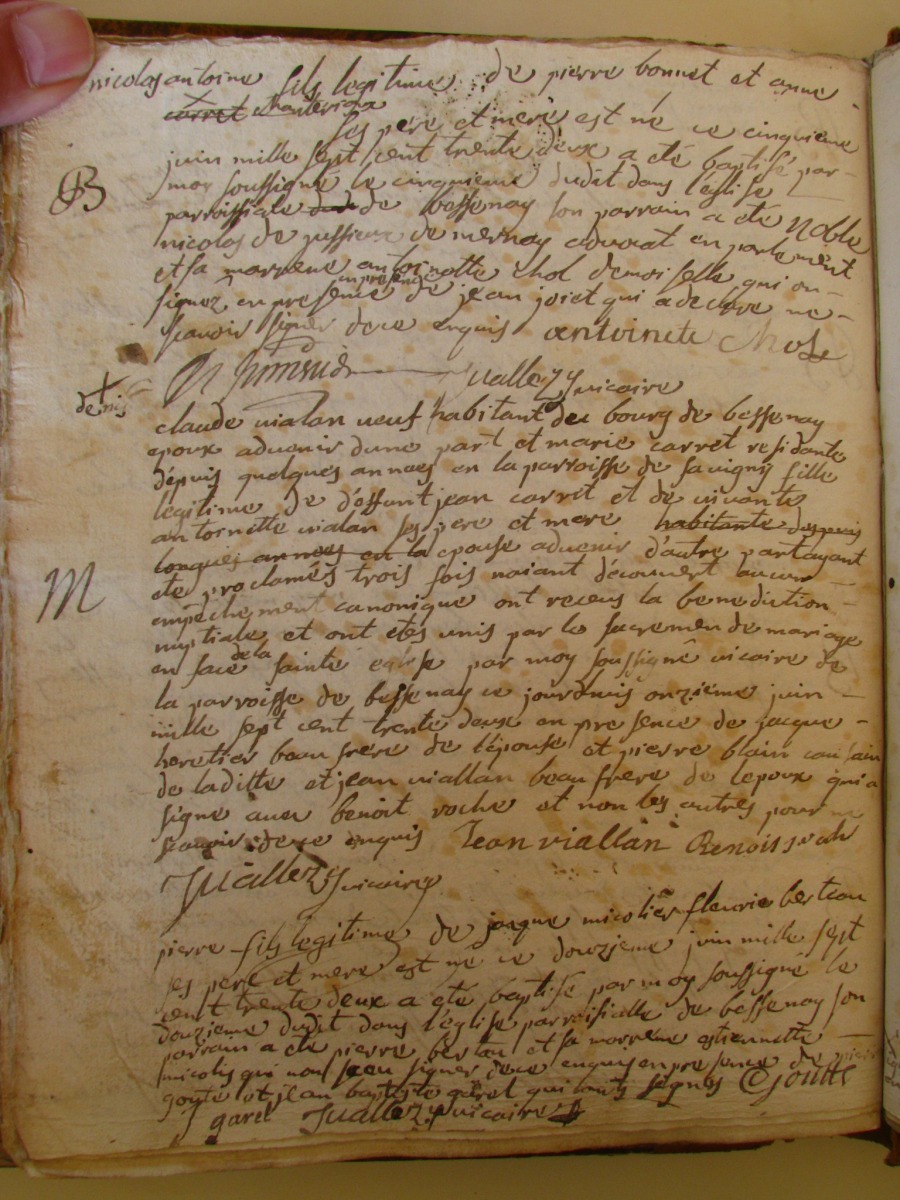 nicolas antoine fils legitime de pierre bonnet et anne
carret chanterique
ses pere et mere est né ce cinquieme
juin mille sept cent trente deux a eté baptisé par
moy soussigné le cinquieme dudit dans l'eglise
B
parroissialle de bessenay son parrain a eté Noble
nicolas de jussieux de mernay advocat en parlement
et sa marrene antoinette chol demoiselle qui on
en presence
signez en presence de jean joiet qui a declare ne
scavoir signer de ce enquis antoinete Chol
Juallezy vicaire
denis
claude vialan veuf habitant deu bourg de bessenay
epoux advenir dune part et marie carret residante
dépuis quelques annees en la parroisse de savigny fille
legitime de déffunt jean carret et de vivante
antoinette vialan ses pere et mere habitante despuis
longues annees en la epouse advenir d'autre part ayant
M
eté proclamés trois fois naiant découvert aucun
empêchement canonique ont receus la benediction
nuptiale et ont etés unis par le sacremen de mariage
de la
en face sainte eglise par moy soussigné vicaire de
la parroisse de bessenay ce jourdhuis onzieme juin
mille sept cent trente deux en presence de jacque
heretier beau frere de l'épouse et pierre blain cousain
de laditte et jean viallan beau frere de lepoux qui a
signe avec benoit roche et non les autres pour ne
scavoir de ce enquis Jean viallan Benoist roch
Juallezy vicaire
pierre fils legitime de jaque micolier fleurie bertau
ses pere et mere est né ce douzieme juin mille sept
cent trente deux a eté baptisé par moy soussigné le
douzieme dudit dans l'église parroissialle de bessenay son
parrain a eté pierre bertau et sa marrene estiennette
micolis qui non sceu signer de ce enquis en presence de
goute et jean baptiste garel qui ont signés goutte
garel Juallezy vicaire